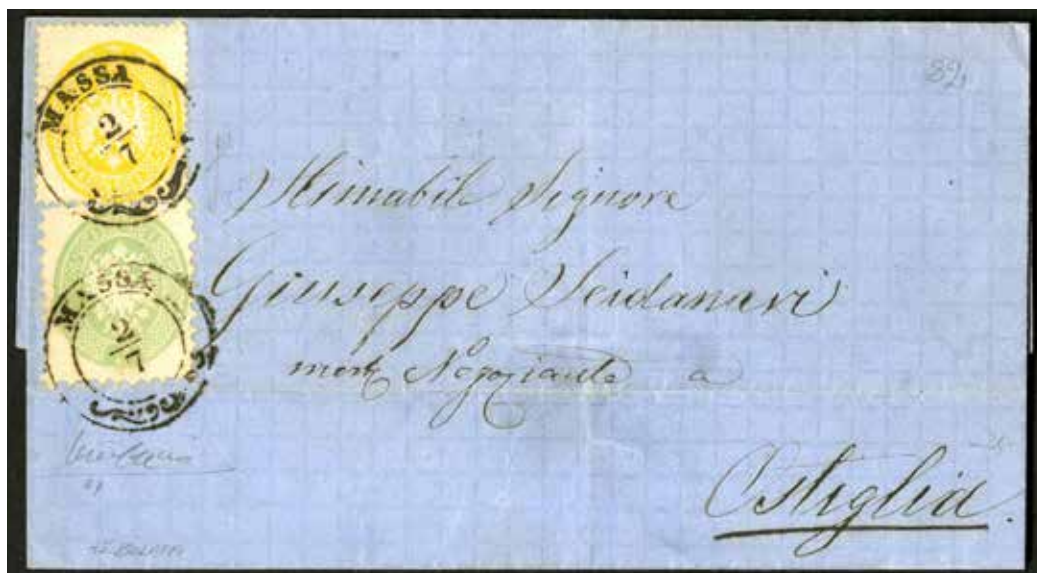 MASSA
2/7
MASSA
2/7
89
Stimabile Signore
Giuseppe
Negoziante a
Ostiglia.